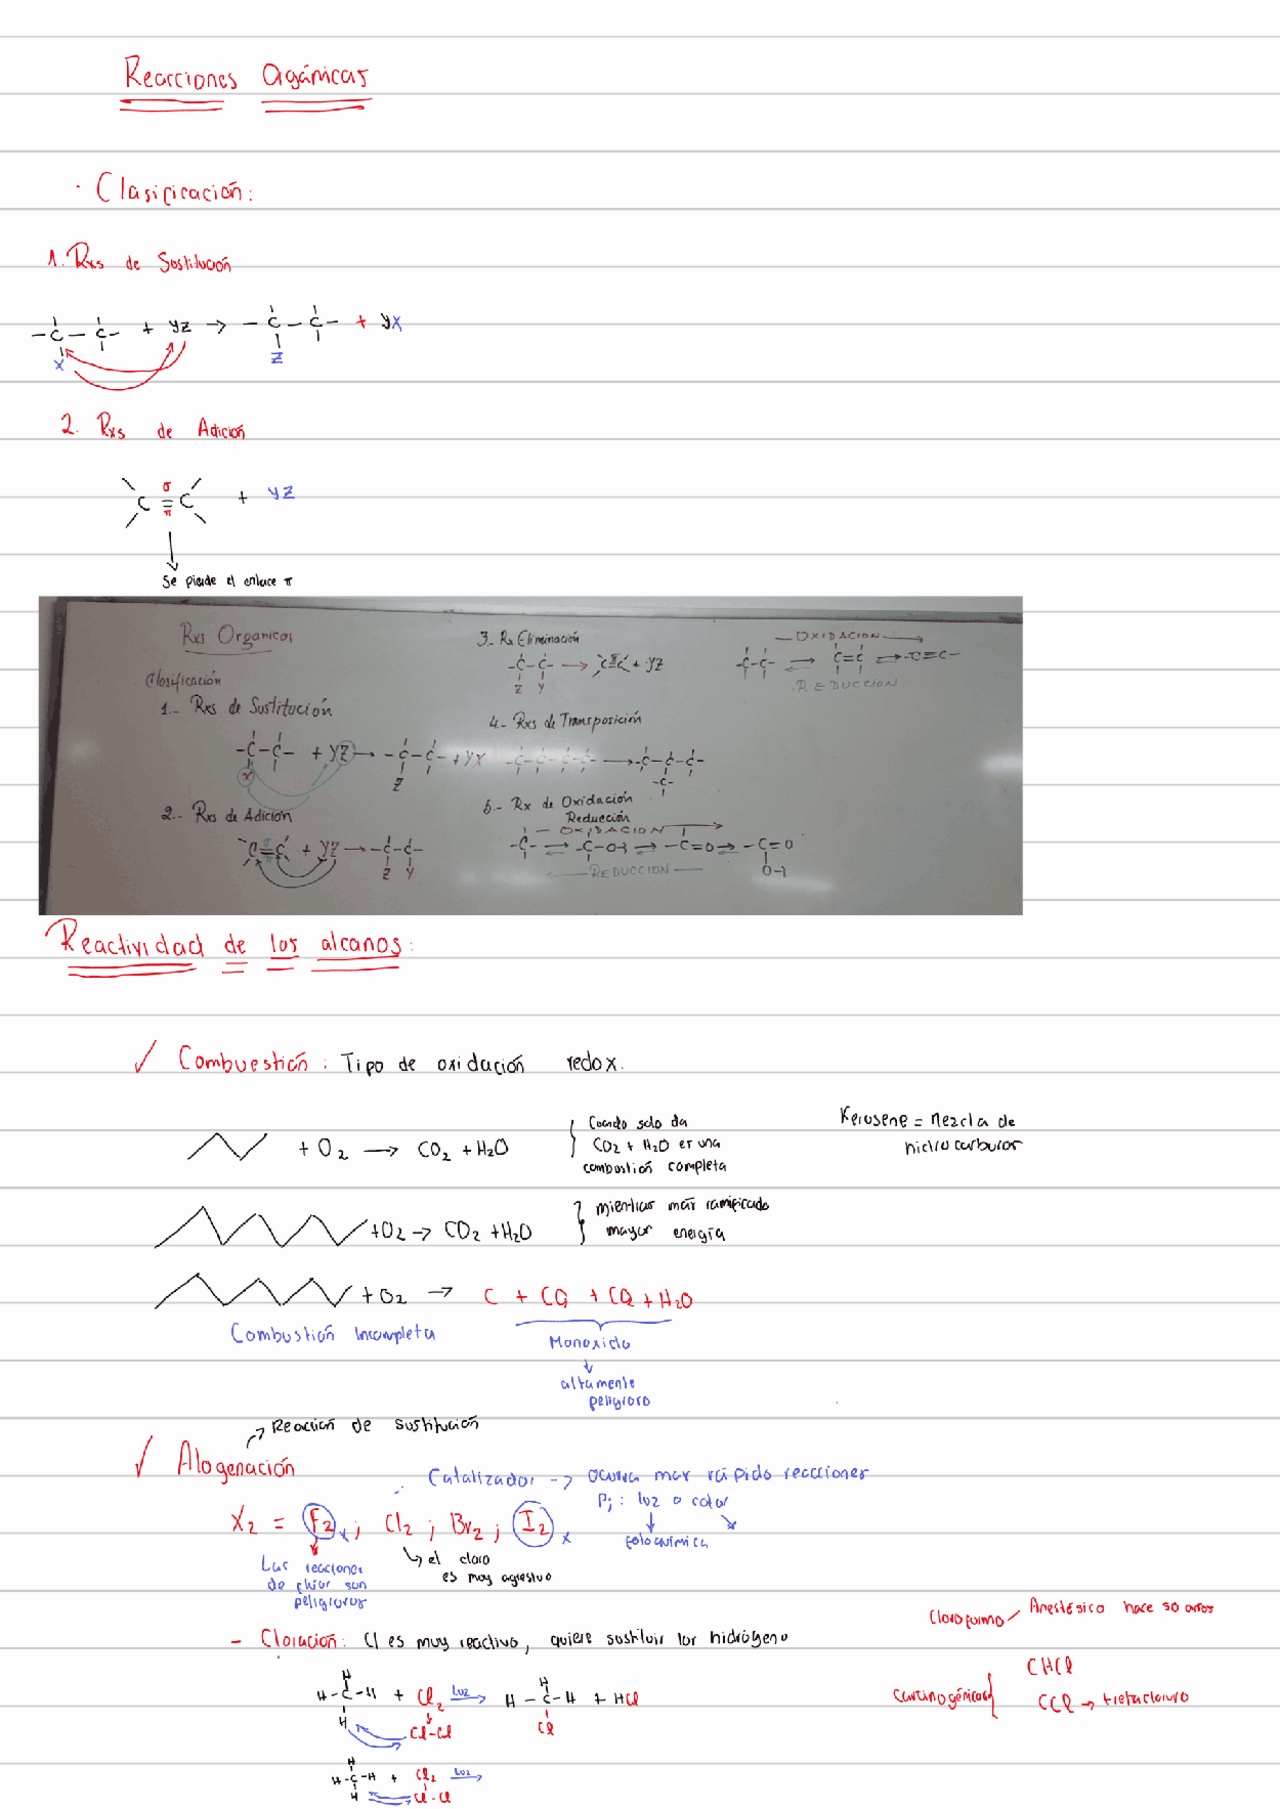 Reacciones Orgánicas
· Clasificación:
1. Rxs de Sostitución
-C-C- + YZ → -C-C- + YX
X
Z
2. Rxs de Adición
σ
C=C + YZ
π
Se pierde el enlace π
Rxs Organicas
Clasificación
1.- Rxs de Sustitución
-C-C- + YZ → -C-C- + YX
X
Z
2.- Rxs de Adición
C=C + YZ → -C-C-
Z Y
3.- Rx Eliminación
-C-C- → C=C + YZ
Z Y
4.- Rxs de Transposición
-C-C-C-C- → -C-C-C-
-C-
5.- Rx de Oxidación
Reducción
OXIDACION
-C- ⇌ -C-OH ⇌ -C=O ⇌ -C=O
OH
REDUCCION
OXIDACION
-C-C- ⇌ C=C ⇌ -C≡C-
REDUCCION
Reactividad de los alcanos:
✓ Combuestión: Tipo de oxidación redox.
+ O2 → CO2 + H2O
Cuando solo da
CO2 + H2O es una
combustión completa
Kerosene = Mezcla de
hidrocarburos
+O2 → CO2 +H2O
mientras más ramificado
mayor energía
+ O2 → C + CO + CO2 + H2O
Combustión Incompleta
Monoxido
altamente
peligroso
Reacción de sustitución
✓ Alogenación
Catalizador → Ocurra mas rápido reacciones
Pj: luz o calor
fotoquímica
X2 = F2 x; Cl2; Br2; I2 x
Las reacciones
de flúor son
peligrosas
el cloro
es muy agresivo
- Cloración: Cl es muy reactivo, quiere sustituir los hidrógeno
Cloroformo
Anestésico hace 50 años
H
H-C-H + Cl2 luz → H-C-H + HCl
H
Cl-Cl
Cl
Carcinogénicas
CHCl
CCl → tretacloruro
H
H-C-H + Cl2 luz →
H
Cl-Cl